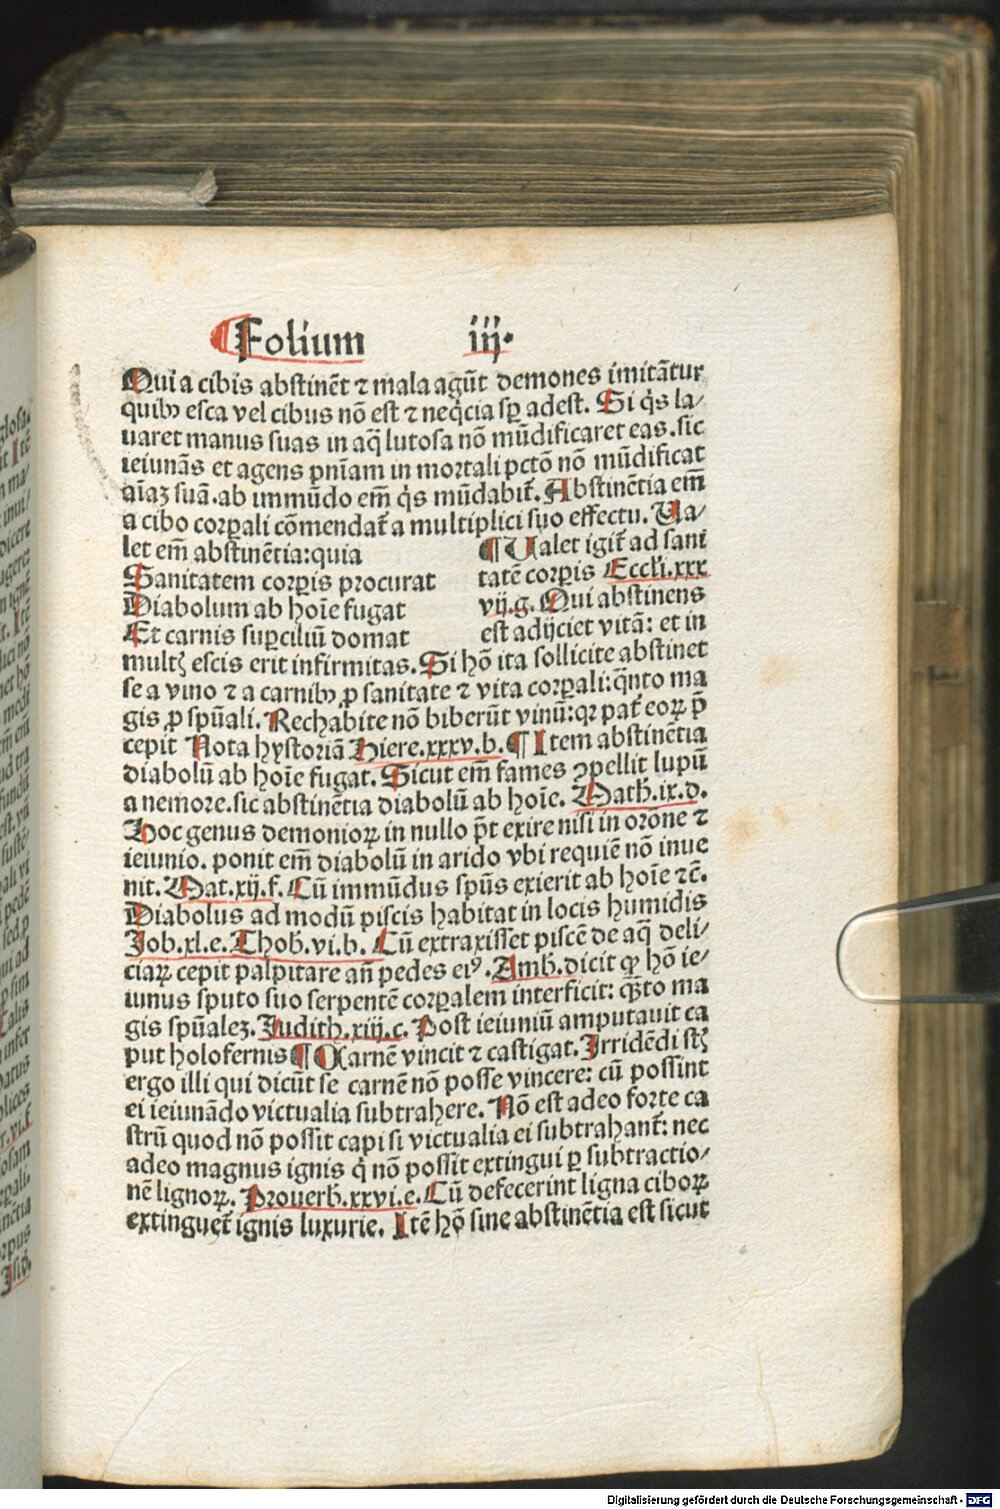 ¶Folium iij.
Qui a cibis abstinēt ⁊ mala agūt demones imitātur
quibꝰ esca vel cibus nō est ⁊ neq̇cia sꝑ adest. Si q̇s la/
uaret manus suas in aq̄ lutosa nō mūdificaret eas. sic
ieiunās et agens pn̄iam in mortali pctō nō mūdificat
aīaꝫ suā. ab immūdo em̄ q̇s mūdabit̄. Abstinētia em̄
a cibo corꝑali cōmendat̄ a multiplici suo effectu. Ua/
let em̄ abstinētia: quia
Sanitatem corꝑis procurat
Diabolum ab hoīe fugat
Et carnis suꝑciliū domat
¶Ualet igit̄ ad sani
tatē corꝑis Eccłi. xxx
vij. g. Qui abstinens
est adijciet vitā: et in
multꝭ escis erit infirmitas. Si hō ita sollicite abstinet
se a vino ⁊ a carnibꝰ ꝓ sanitate ⁊ vita corꝑali: q̄nto ma
gis ꝓ spūali. Rechabite nō biberūt vinū: qꝛ pat̄ eoꝝ p̄
cepit Nota hystoriā Hiere. xxxv. b. ¶Item abstinētia
diabolū ab hoīe fugat. Sicut em̄ fames ꝯpellit lupū
a nemore. sic abstinētia diabolū ab hoīe. Math. ix. d.
Hoc genus demonioꝝ in nullo p̄t exire nisi in orōne ⁊
ieiunio. ponit em̄ diabolū in arido vbi requiē nō inue
nit. Mat. xij. f. Cū immūdus spūs exierit ab hoīe ⁊c̄.
Diabolus ad modū piscis habitat in locis humidis
Job. xl. e. Thob. vi. b. Cū extraxisset piscē de aq̄ deli/
ciaꝝ cepit palpitare an̄ pedes eiꝰ. Amb. dicit ꝙ hō ie/
iunus sputo suo serpentē corꝑalem interficit: q̄to ma
gis spūaleꝫ. Judith. xiij. c. Post ieiuniū amputauit ca
put holofernis ¶Carnē vincit ⁊ castigat. Irridēdi stꝭ
ergo illi qui dicūt se carnē nō posse vincere: cū possint
ei ieiunādo victualia subtrahere. Nō est adeo forte ca
strū quod nō possit capi si victualia ei subtrahant̄: nec
adeo magnus ignis q̇ nō possit extingui ꝑ subtractio/
nē lignoꝝ. Prouerb. xxvi. e. Cū defecerint ligna ciboꝝ
extinguet̄ ignis luxurie. Itē hō sine abstinētia est sicut
Digitalisierung gefördert durch die Deutsche Forschungsgemeinschaft - DFG